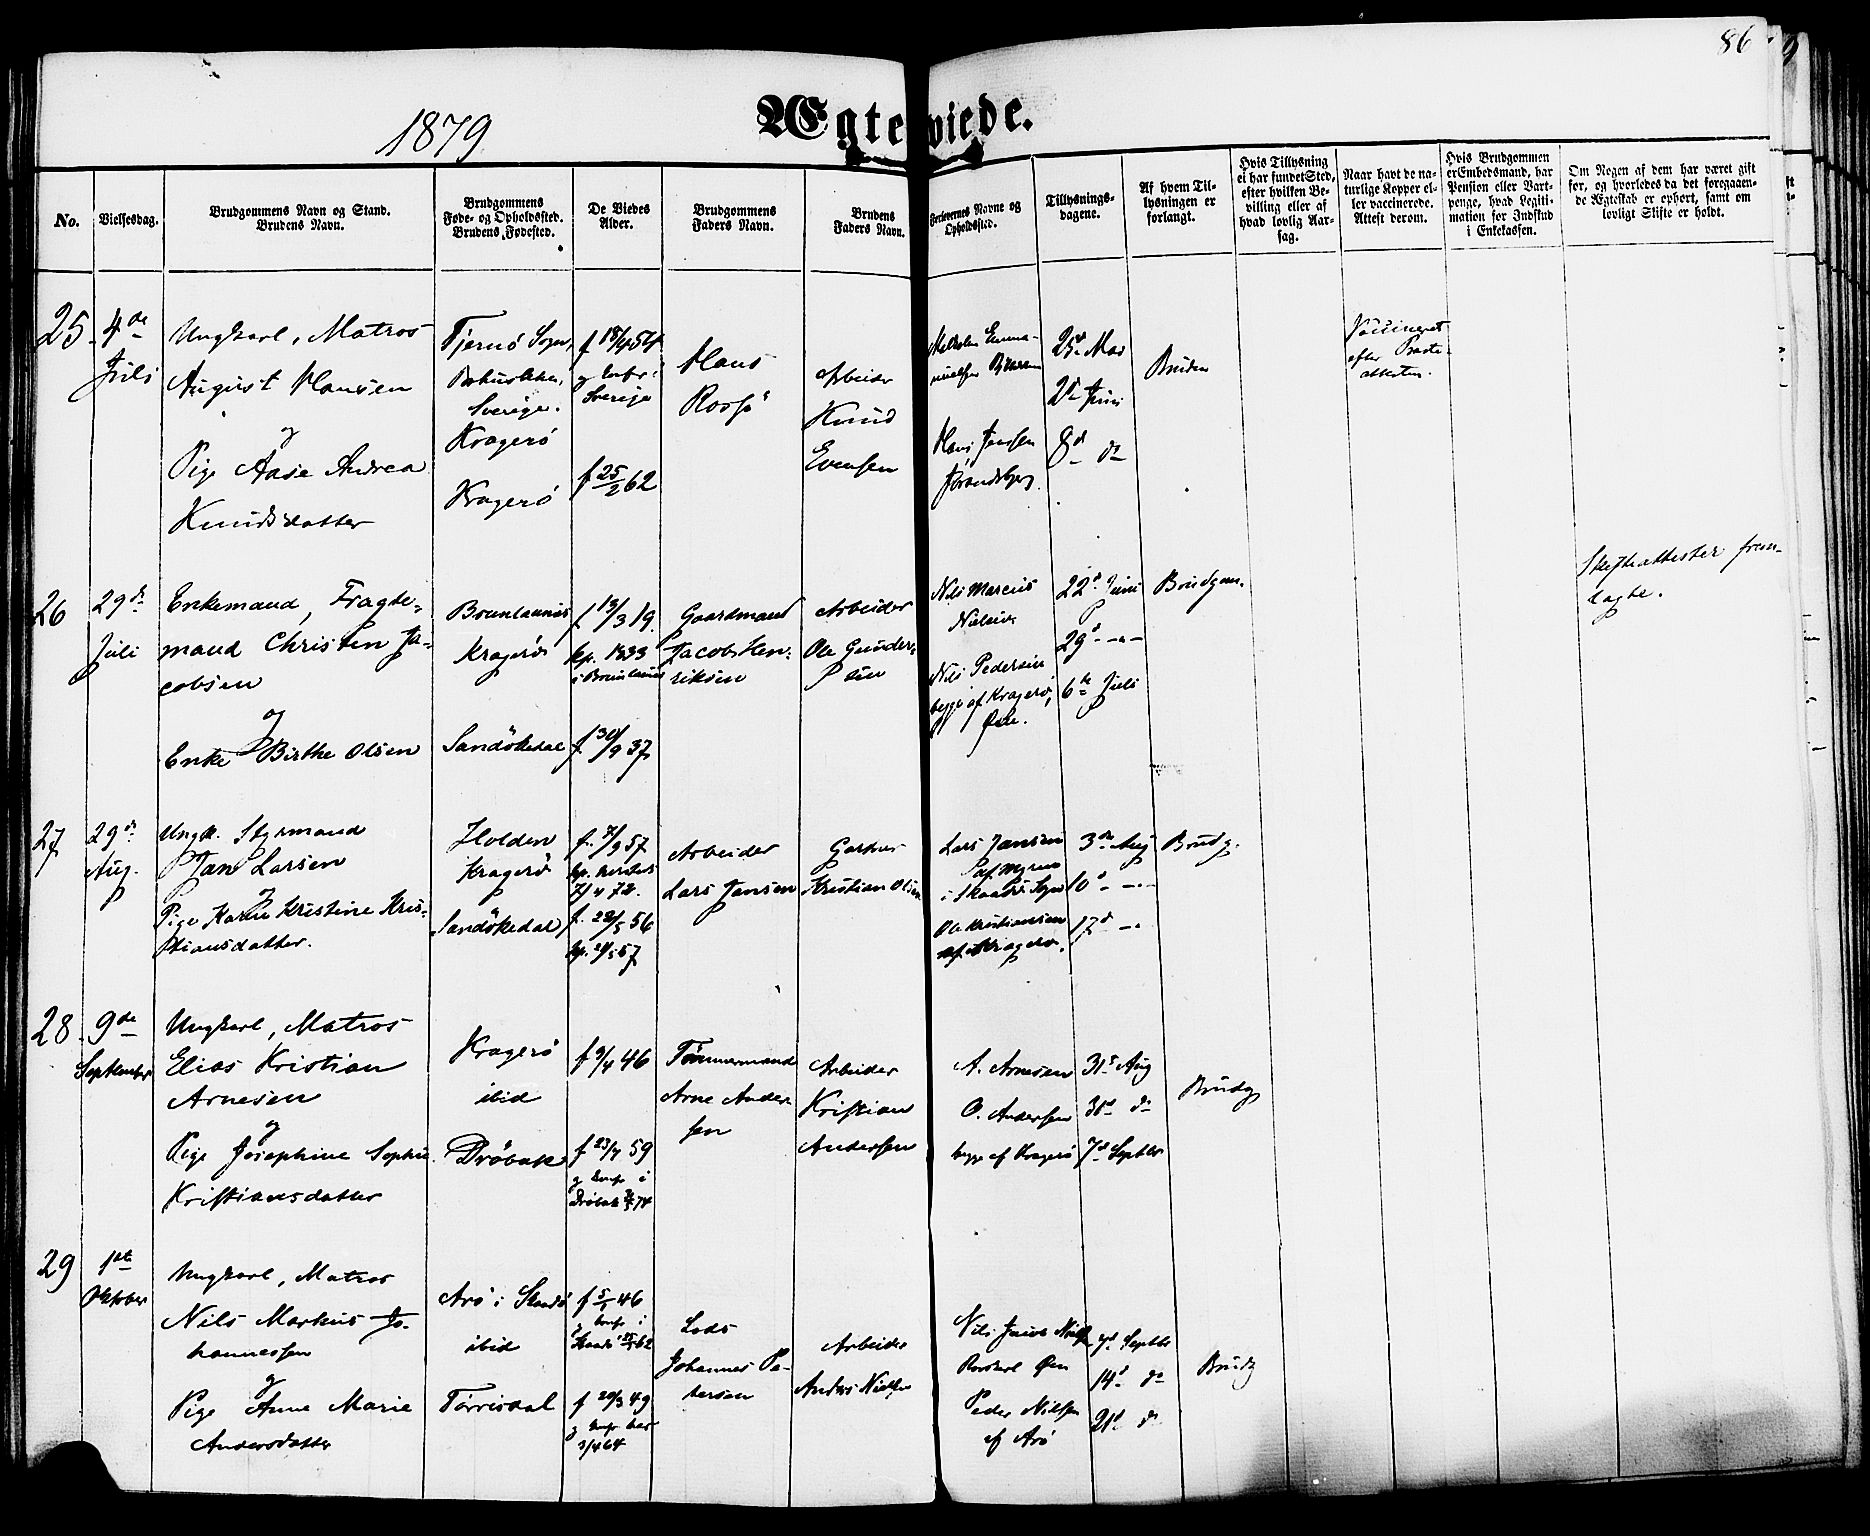 86
1879
Ægteviede.
No.
Vielsesdag.
Brudgommens Navn og Stand.
Brudens Navn.
Brudgommens
Føde- og Opholdssted.
Brudens Fødested.
De Viedes
Alder.
Brudgommens
Faders Navn.
Brudens
Faders Navn.
Forlovernes Navne og
Opholdssted.
Tillysnings-
dagene.
Af hvem Til-
lysningen er
forlangt.
Hvis Tillysning
ei har fundet Sted,
efter hvilken Be-
villing eller af
hvad lovlig Aar-
sag.
Naar havt de na-
turlige Kopper el-
ler vaccinerede.
Attest derom.
Hvis Brudgommen
er Embedsmand, har
Pension eller Vart-
penge, hvad Legiti-
mation for Indskud
i Enkekassen.
Om Nogen af dem har været gift
før, og hvorledes da det foregaaen-
de Ægteskab er ophørt, samt om
lovligt Skifte er holdt.
25
4de
Juli
Ungkarl, Matros
August Hansen
og
Pige Aase Andrea
Knudsdatter
Tjernö Sogn,
Sverige.
Kragerö
Kragerö
f 18/4 54
Sverige
f 25/2 62
Hans
Arbeider
Knud
Evensen
Hans Jensen
25d Mai
2d Juni
8d do
Bruden
Vaccineret
efter Præste-
attester.
26
29de
Juli
Enkemand, Fragte-
mand Christen Ja-
cobsen
og
Enke Birthe Olsen
Brunlaunæs
Kragerö
Sandökedal
f 13/3 19.
kp. 1833
i Brunlaunæs
f. 30/9 37.
Gaardmand
Jacob Hen-
riksen
Arbeider
Ole Gunder-
sen
Nils Marcus
Nielsen
Nils Pedersen
begge af Kragerö,
22d Juni
29d - " -
6te Juli
Brudgom.
Skifteattester frem-
lagte.
27
29de
Aug.
Ungk. Styrmand
Jan Larsen
og
Pige Karen Kristine Kris-
tiansdatter.
Holden
Kragerö
Sandökedal
f. 7/9 57
f. 22/5 56
Arbeider
Lars Jansen
Gartner
Kristian Olsen
Lars Jansen
i Skaatö Sogn
Ole Kristiansen
af Kragerö.
3de Aug
10d - " -
17d - "
Brudg.
28
9de
September
Ungkarl, Matros
Elias Kristian
Arnesen
og
Pige Josephine Sophie
Kristiansdatter
Kragerö
ibid
Dröbak
f 3/4 46
f 23/7 59
og konf. i
Dröbak 74
Tömmermand
Arne Ander-
sen
Arbeider
Kristian
Andersen
A. Arnesen
O. Andersen
begge af Kragerö
31d Aug
31d do
7d Septbr
Brudg
29
1ste
Oktober
Ungkarl, Matros
Nils Markus Jo-
hannessen
og
Pige Anne Marie
Andersdatter
Arö i Skaatö
ibid
Törrisdal
f 5/1 46
og konf. i
Skaatö 62
f 20/3 49
og konf. her
3/4 64
Lods
Johannes Pe-
tersen
Arbeider
Anders Nielsen
Nils Jacob Nielsen
Peder Nilsen
af Arö
7d Septbr
14d do
21d do
Brudg